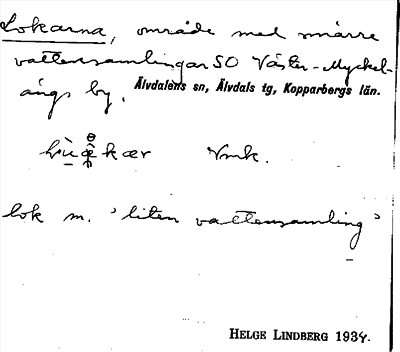 Lokarna, område med smärre
vattensamlingar SO Väster-Myckel-
ängs by. Älvdalens sn, Älvdals tg, Kopparbergs län.
kær Vmk.
lok m. 'liten vattensamling'
HELGE LINDBERG 1934.